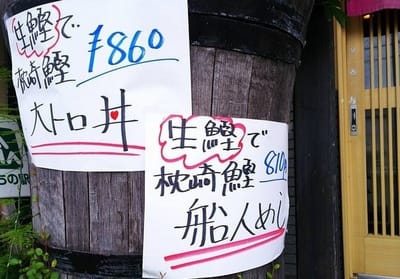 生鰹で
枕崎鰹
¥860
大トロ丼
生鰹で
枕崎鰹
810円
船人めし